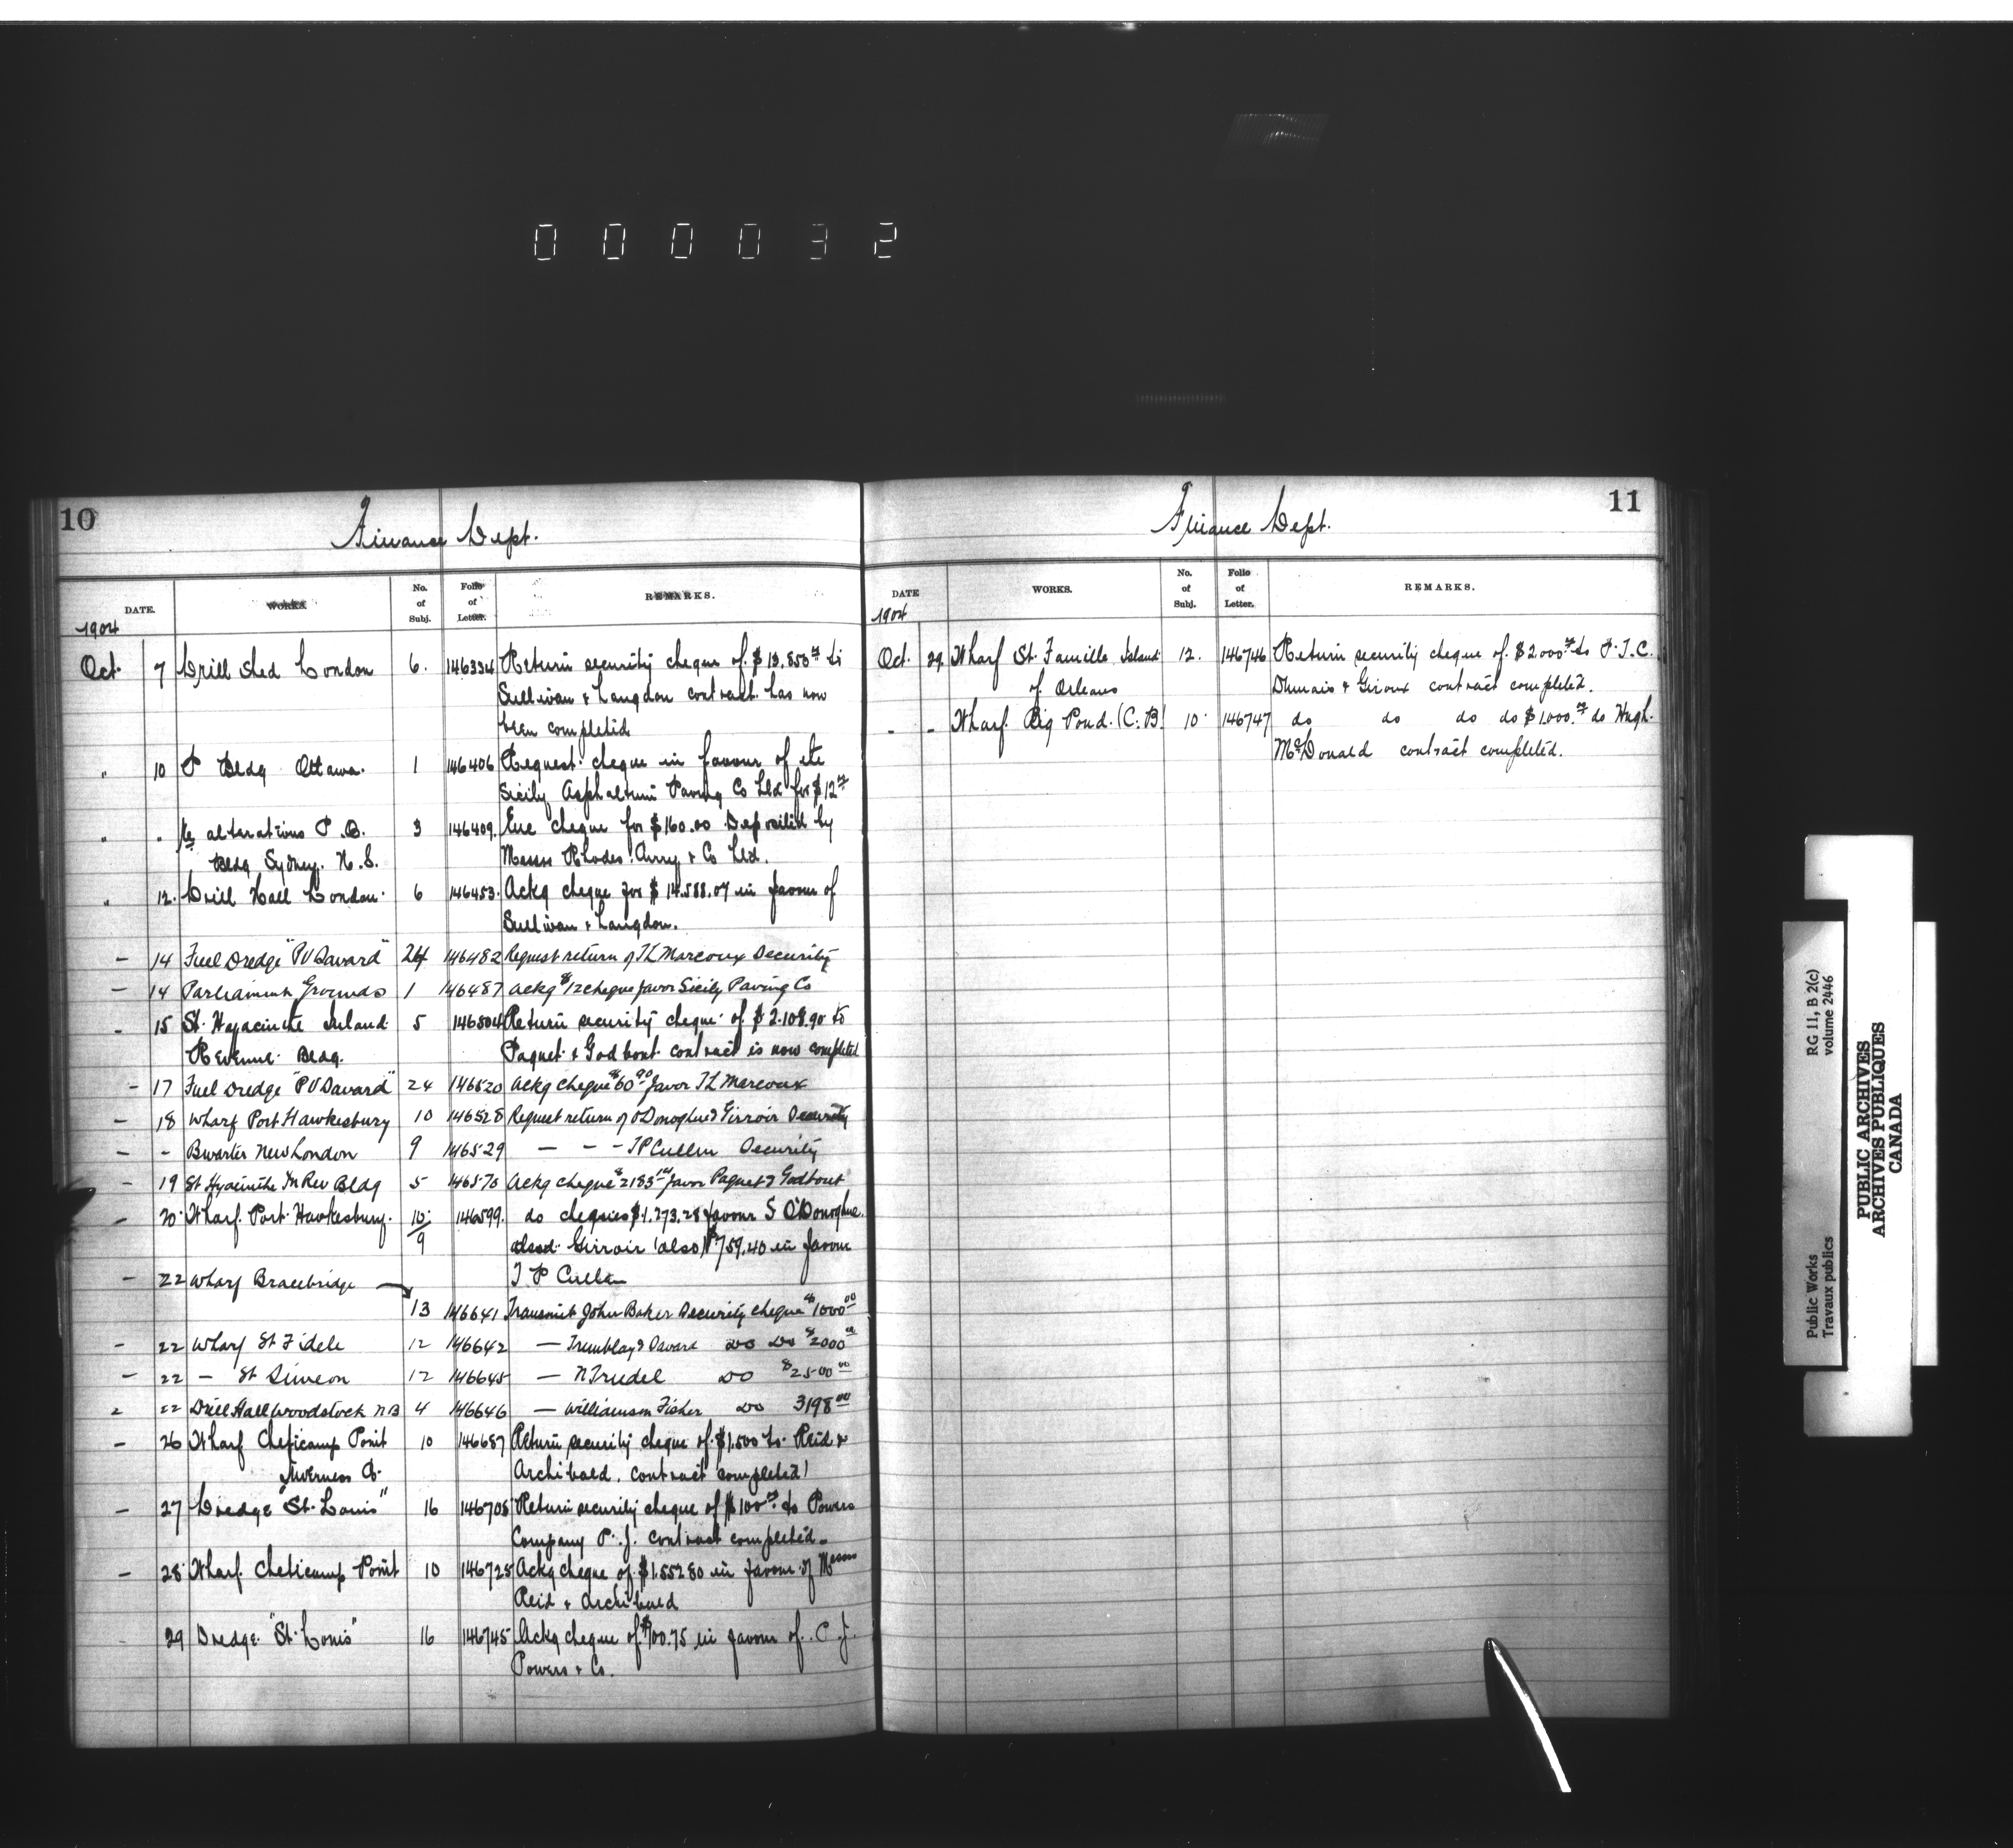 000032
10
Finance Dept.
DATE. WORKS. No. of Subj. Folio of Letter. REMARKS.
1904
Oct. 7 Drill Shed London 6. 146334 Return security cheque of $13.850.00 to
Sullivan & Langdon contract has now
been completed
" 10 P Bldg Ottawa. 1 146406 Request cheque in favour of the
Sicily Asphaltum Paving Co Ltd for $12.00
" " alterations P.B. 3 146409. Enc cheque for $160.00 Deposited by
Bldg Sydney. N.S. Messrs Rhodes. Curry & Co Ltd.
" 12. Drill Hall London. 6 146453. Ackg cheque for $14.588.07 in favour of
Sullivan & Langdon.
- 14 Fuel Dredge "P V Savard" 24 146482 Request return of J L Marcoux Security
- 14 Parliament Grounds 1 146487 Ackg $12 cheque favor Sicily Paving Co
- 15 St. Hyacinthe Inland 5 146504 Return security cheque of $2.108.90 to
Revenue Bldg. Paquet & Godbout contract is now completed
- 17 Fuel Dredge "P V Savard" 24 146520 Ackg cheque $60.90 favor J L Marcoux
- 18 Wharf Port Hawkesbury 10 146528 Request return of O'Donoghue & Girroir Security
- - Bwater New London 9 146529 — - - J P Cullen Security
- 19 St Hyacinthe In Rev Bldg 5 146570 Ackg cheque $2183.14 favor Paquet & Godbout
- 20 Wharf. Port. Hawkesbury. 10/9 146599. do cheques $1.273.28 favour S O'Donoghue
Girroir (also) $759.40 in favour
- 22 Wharf Bracebridge J P Cullen
13 146641 Transmit John Baker Security cheque $1000.00
- 22 Wharf St Fidele 12 146642 — Tremblay & Savard do do $2000.00
- 22 — St Simeon 12 146645 — N Trudel do $2500.00
- 22 Drill Hall Woodstock NB 4 146646 — Williamson Fisher do 3198.00
- 26 Wharf Cheticamp Point 10 146687 Return security cheque of $1.500 to Reid &
Inverness Co. Archibald. contract completed
- 27 Dredge "St. Louis" 16 146705 Return security cheque of $100.00 to Powers
Company P. J. contract completed.
- 28 Wharf. Cheticamp Point 10 146725 Ackg cheque of $1.552.80 in favour of Messrs
Reid & Archibald
29 Dredge "St. Louis" 16 146745 Ackg cheque of $100.75 in favour of P. J.
Powers & Co.
11
Finance Dept.
DATE WORKS. No. of Subj. Folio of Letter. REMARKS.
1904
Oct. 29. Wharf St. Famille Island 12. 146746 Return security cheque of $2.000.00 to P.T.C.
of Orleans Dumais & Giroux contract completed.
" - Wharf. Big Pond. (C.B.) 10. 146747 do do do do $1.000.00 do Hugh.
McDonald contract completed.
Public Works
Travaux publics
RG 11, B 2(c)
volume 2446
PUBLIC ARCHIVES
ARCHIVES PUBLIQUES
CANADA